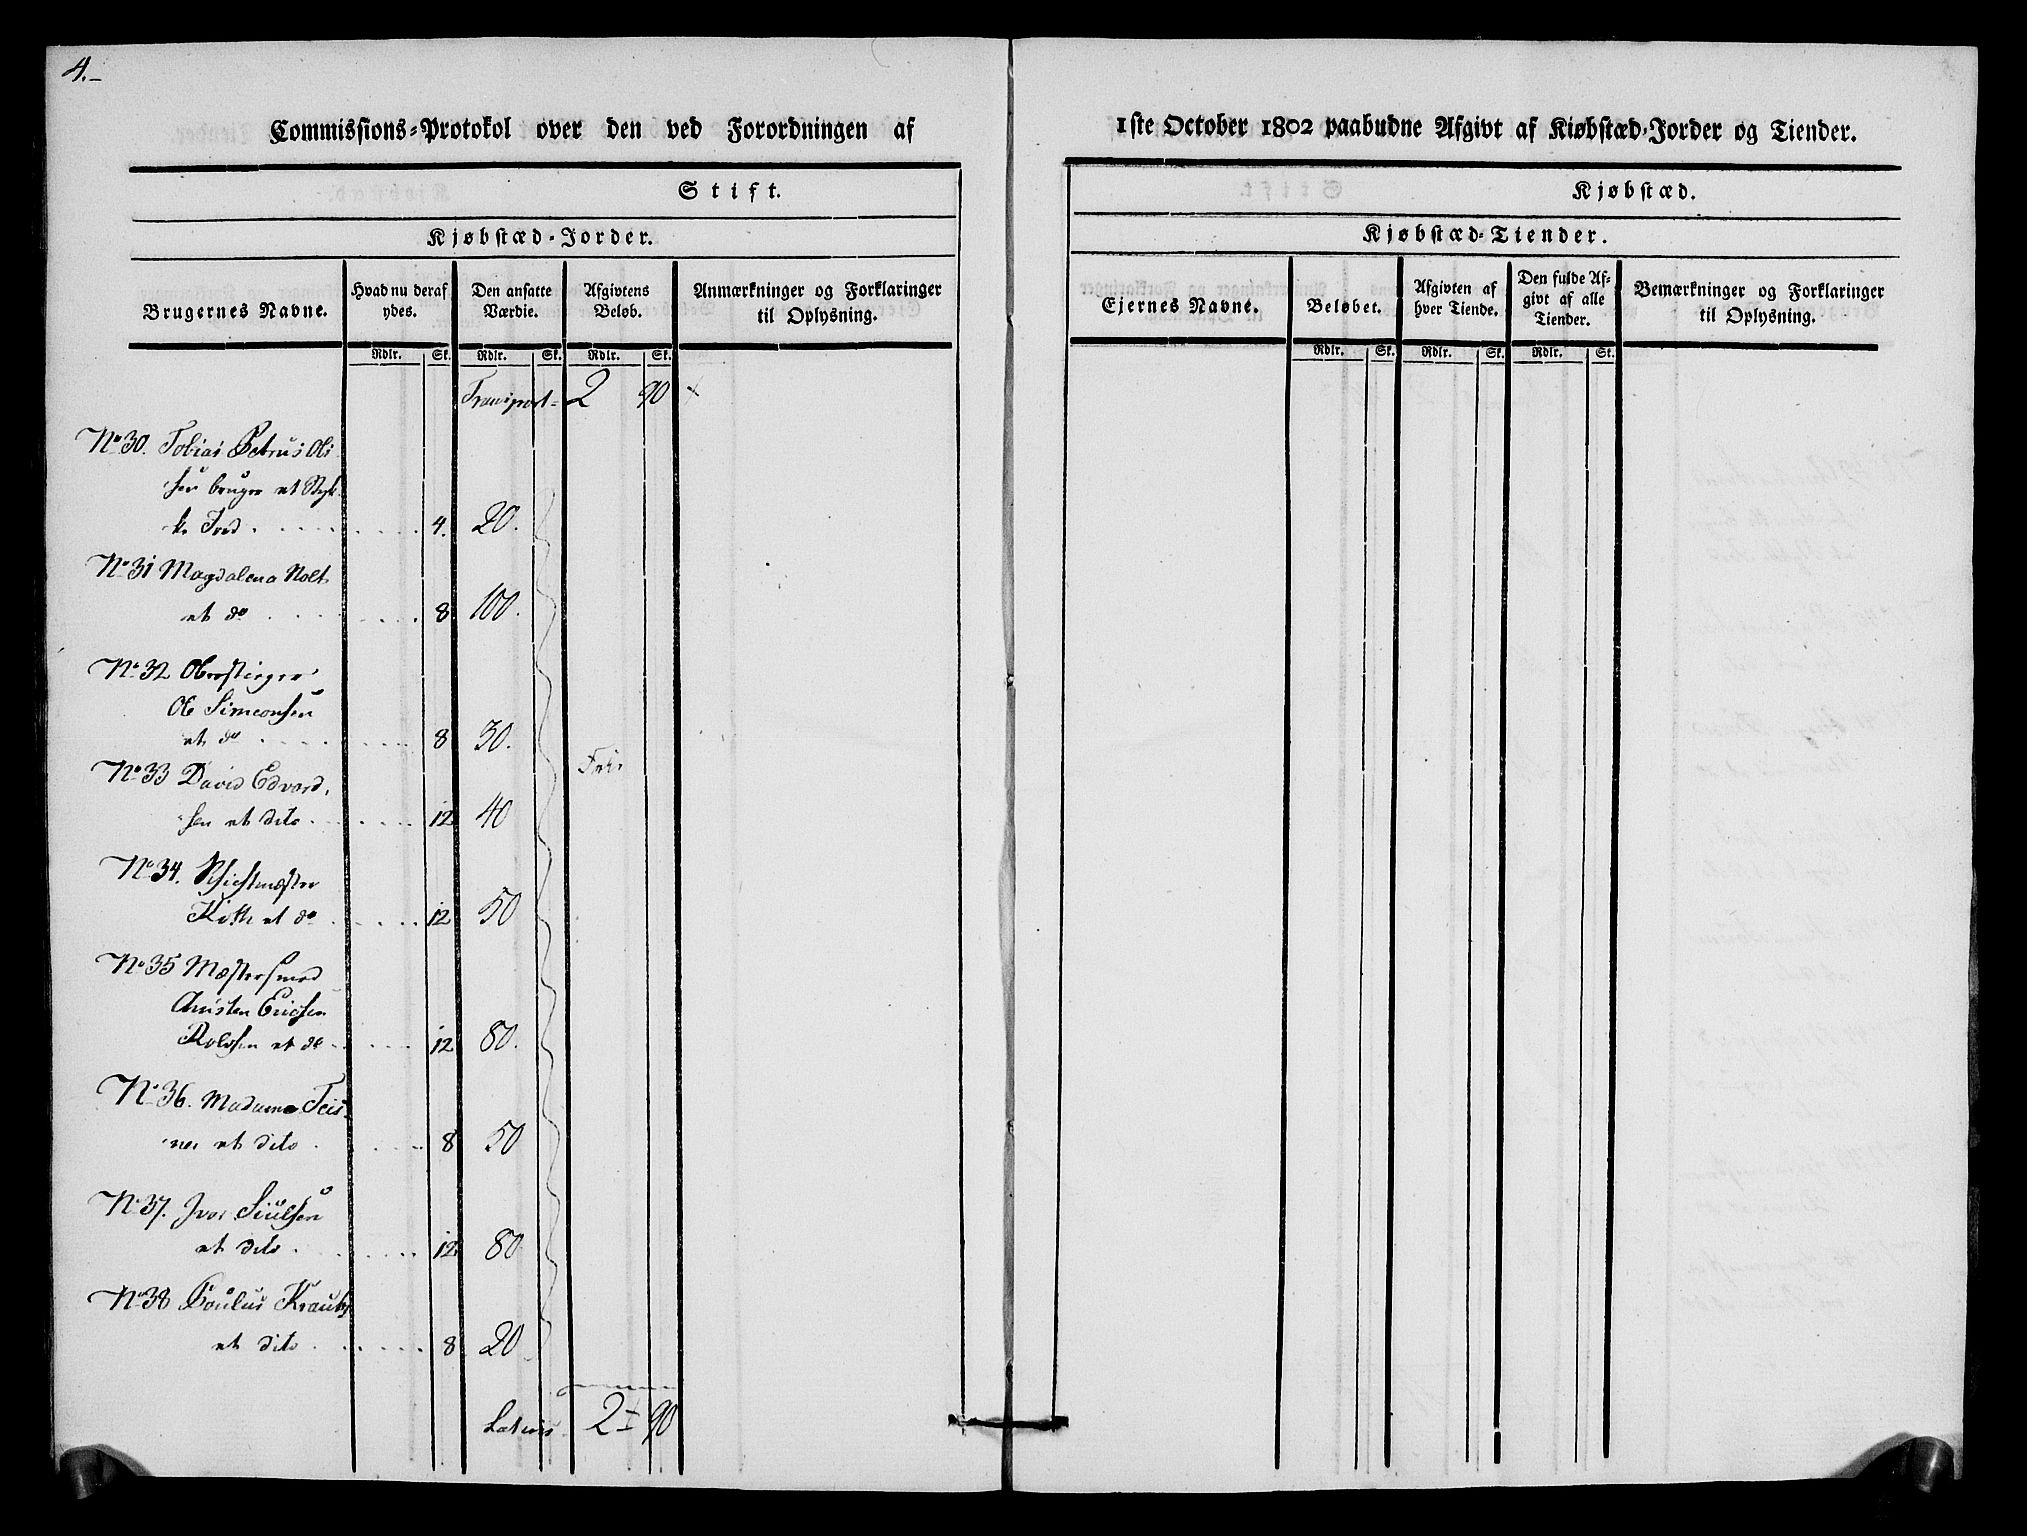 4.-
Commissions-Protokol over den ved Forordningen af
Stift.
Kjøbstæd-Jorder.
Brugernes Navne.
Hvad nu deraf ydes.
Den ansatte Værdie.
Afgivtens Beløb.
Anmærkninger og Forklaringer til Oplysning.
Rdlr. Sk. Rdlr. Sk. Rdlr. Sk.
Transport = 2 90
No 30. Tobias Petrus Ol
sen bruger et Styk
ke Jord . . . . 4. 20.
No 31 Magdalena Nolt
et do . . . . 8 100.
No 32 Oberstieger
Ole Simeonsen
et do . . . . 8 30.
Frie
No 33 David Edvard
sen et dito . . . . 12 40
No 34. Schichtmæster
et do . . . . 12 50
No 35 Mæstersmed
Christen Erichsen
et do . . . . 12 80.
No 36. Madame Teis
ner et dito . . . . 8 50
No 37. Iver Siulsen
et dito . . . . 12 80
No 38 Poulus Krauts
et dito . . . . 8 20
Latus 2 90
1ste October 1802 paabudne Afgivt af Kiøbstæd-Jorder og Tiender.
Kjøbstæd.
Kjøbstæd-Tiender.
Ejernes Navne.
Beløbet.
Afgivten af hver Tiende.
Den fulde Afgivt af alle Tiender.
Bemærkninger og Forklaringer til Oplysning.
Rdlr. Sk. Rdlr. Sk. Rdlr. Sk.